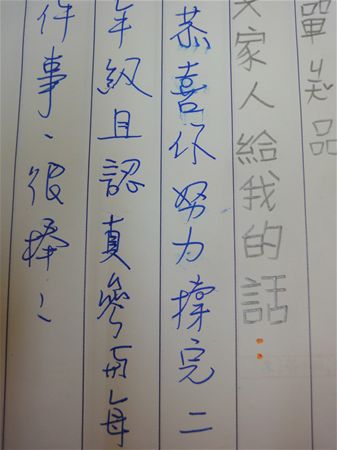 品
家人給我的話：
恭喜你努力撐完二
年級且認真參與每
件事、很棒！